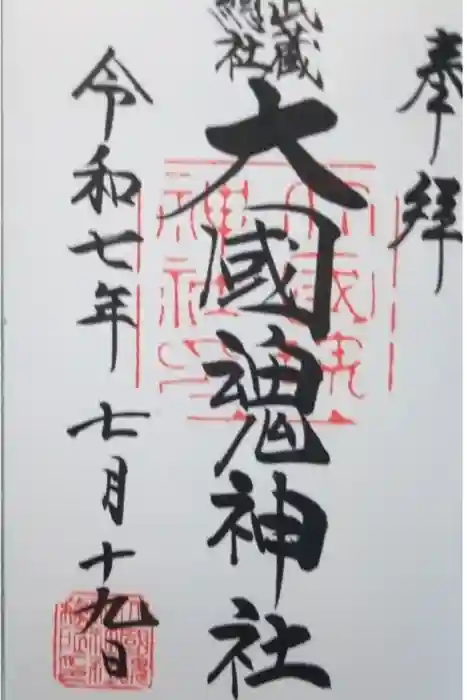 奉拝
武蔵
総社
大國魂神社
令和七年七月十九日